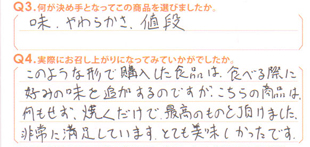 Q3.何が決め手となってこの商品を選びましたか。
味、やわらかさ、値段
Q4.実際にお召し上がりになってみていかがでしたか。
このような形で購入した食品は、食べる際に
好みの味を追加するのですが、こちらの商品は、
何もせず、焼くだけで、最高のものと頂けました。
非常に満足しています。とても美味しかったです。